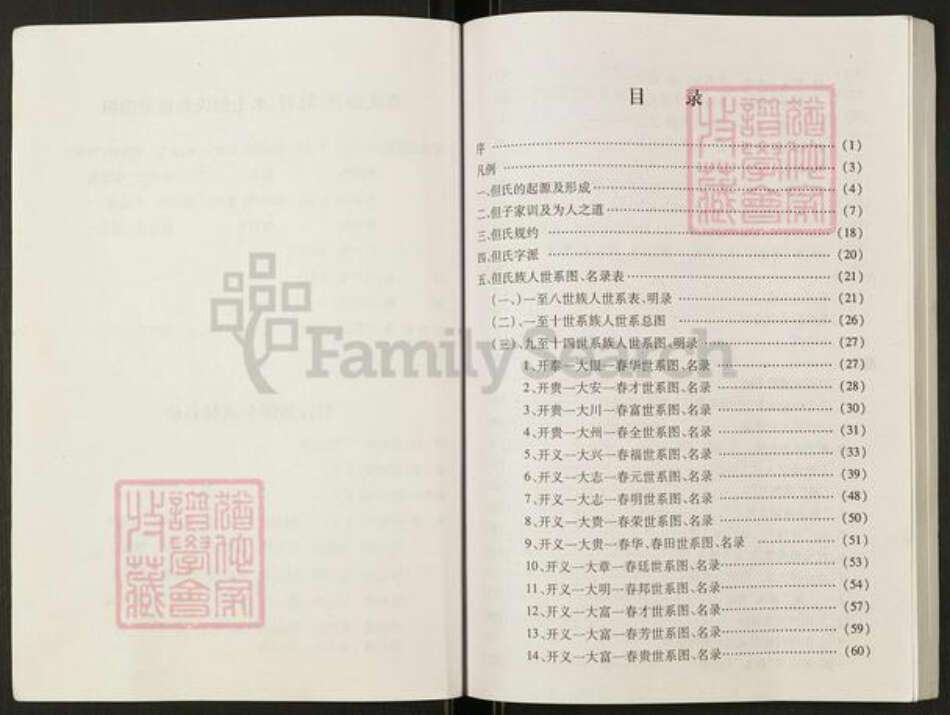 目 录
序 ……………… (1)
凡例 ……………… (3)
一、但氏的起源及形成 ……………… (4)
二、但子家训及为人之道 ……………… (7)
三、但氏规约 ……………… (18)
四、但氏字派 ……………… (20)
五、但氏族人世系图、名录表 ……………… (21)
(一、)一至八世族人世系表、明录 ……………… (21)
(二)、一至十世系族人世系总图 ……………… (26)
(三)、九至十四世系族人世系图、明录 ……………… (27)
1、开泰一大银一春华世系图、名录 ……………… (27)
2、开贵一大安一春才世系图、名录 ……………… (28)
3、开贵一大川一春富世系图、名录 ……………… (30)
4、开贵一大州一春全世系图、名录 ……………… (31)
5、开义一大兴一春福世系图、名录 ……………… (33)
6、开义一大志一春元世系图、名录 ……………… (39)
7、开义一大志一春明世系图、名录 ……………… (48)
8、开义一大贵一春荣世系图、名录 ……………… (50)
9、开义一大贵一春华、春田世系图、名录 ……………… (51)
10、开义一大章一春廷世系图、名录 ……………… (53)
11、开义一大明一春邦世系图、名录 ……………… (54)
12、开义一大富一春才世系图、名录 ……………… (57)
13、开义一大富一春芳世系图、名录 ……………… (59)
14、开义一大富一春贵世系图、名录 ……………… (60)
FamilySearch